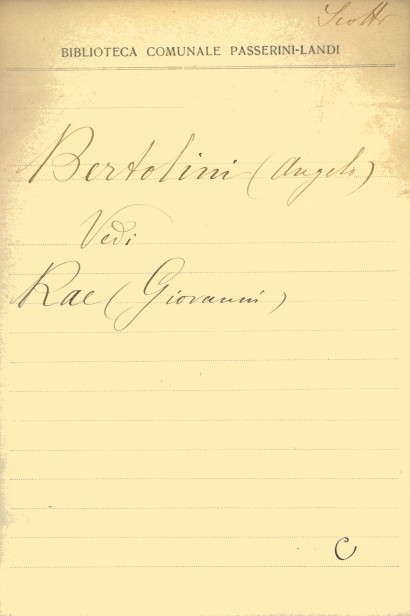 Scotti
BIBLIOTECA COMUNALE PASSERINI-LANDI
Bertolini (Angelo)
Vedi
Rae (Giovanni)
C